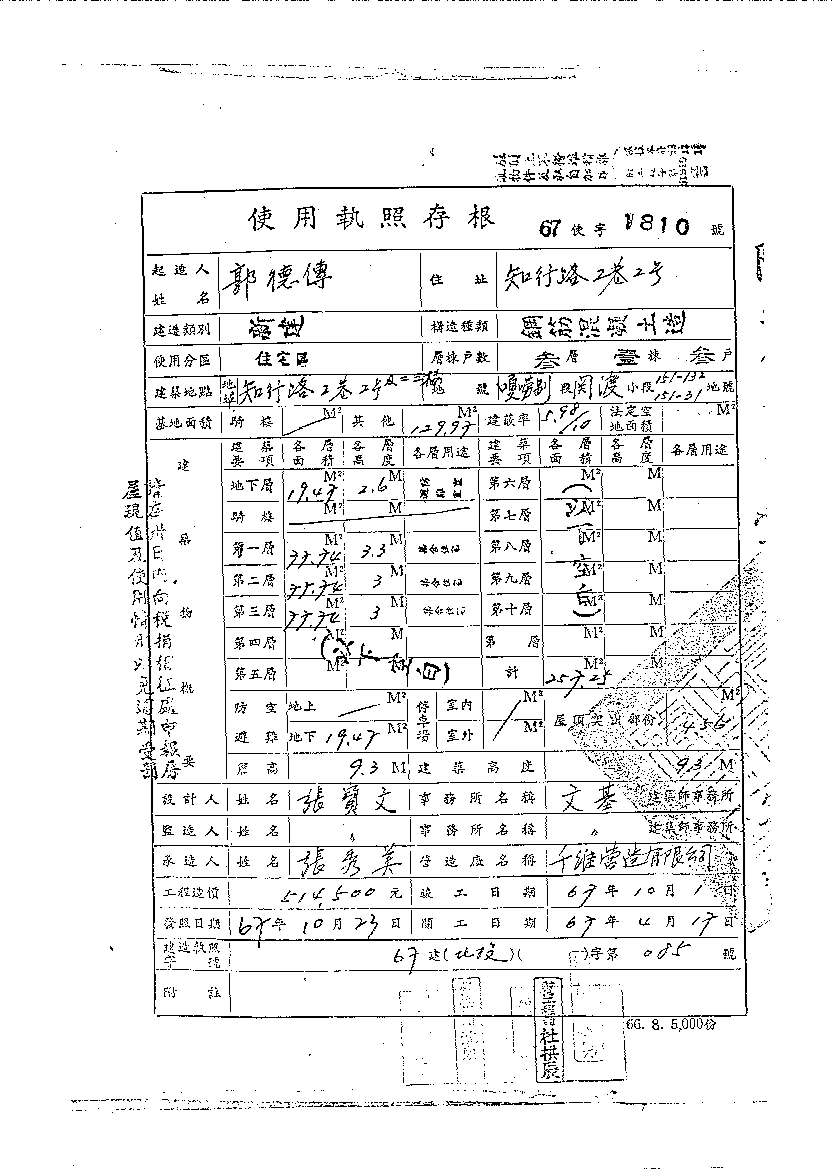 使用執照存根 67使字1810號
起造人姓名 郭德傳 住址 知行路2巷2号
建造類別 新建 構造種類 鋼筋混凝土造
使用分區 住宅區 層棟戶數 叁層壹棟叁戶
建築地點 地址 知行路2巷2号 地號 嗄嘮別段関渡小段151-132 151-31地號
基地面積 騎樓 M² 其他 129.97 M² 建蔽率 5.98/10 法定空地面積 M²
建築物概要 建築要項 各層面積 各層高度 各層用途 建築要項 各層面積 各層高度 各層用途
地下層 19.47 M² 2.6 M 第六層 M² M
騎樓 M² M 第七層 M² M
第一層 77.74 M² 3.3 M 第八層 M² M
第二層 77.74 M² 3 M 第九層 M² M
第三層 77.74 M² 3 M 第十層 M² M
(以下空白)
第四層 M² M 第 層 M² M
第五層 M² M 計 257.25 M² M
防空避難 地上 M² 停車場 室內 M² 屋頂突出部份 4.56 M²
地下 19.47 M² 室外 M²
簷高 9.3 M 建築高度 9.3 M
設計人 姓名 張寶文 事務所名稱 文基 建築師事務所
監造人 姓名 〃 事務所名稱 〃 建築師事務所
承造人 姓名 張秀英 營造廠名稱 千維營造有限公司
工程造價 514,500元 竣工日期 67年10月1日
發照日期 67年10月23日 開工日期 67年4月17日
建造執照字號 67建(北投)( )字第085號
附註
66. 8. 5,000份
社拱辰